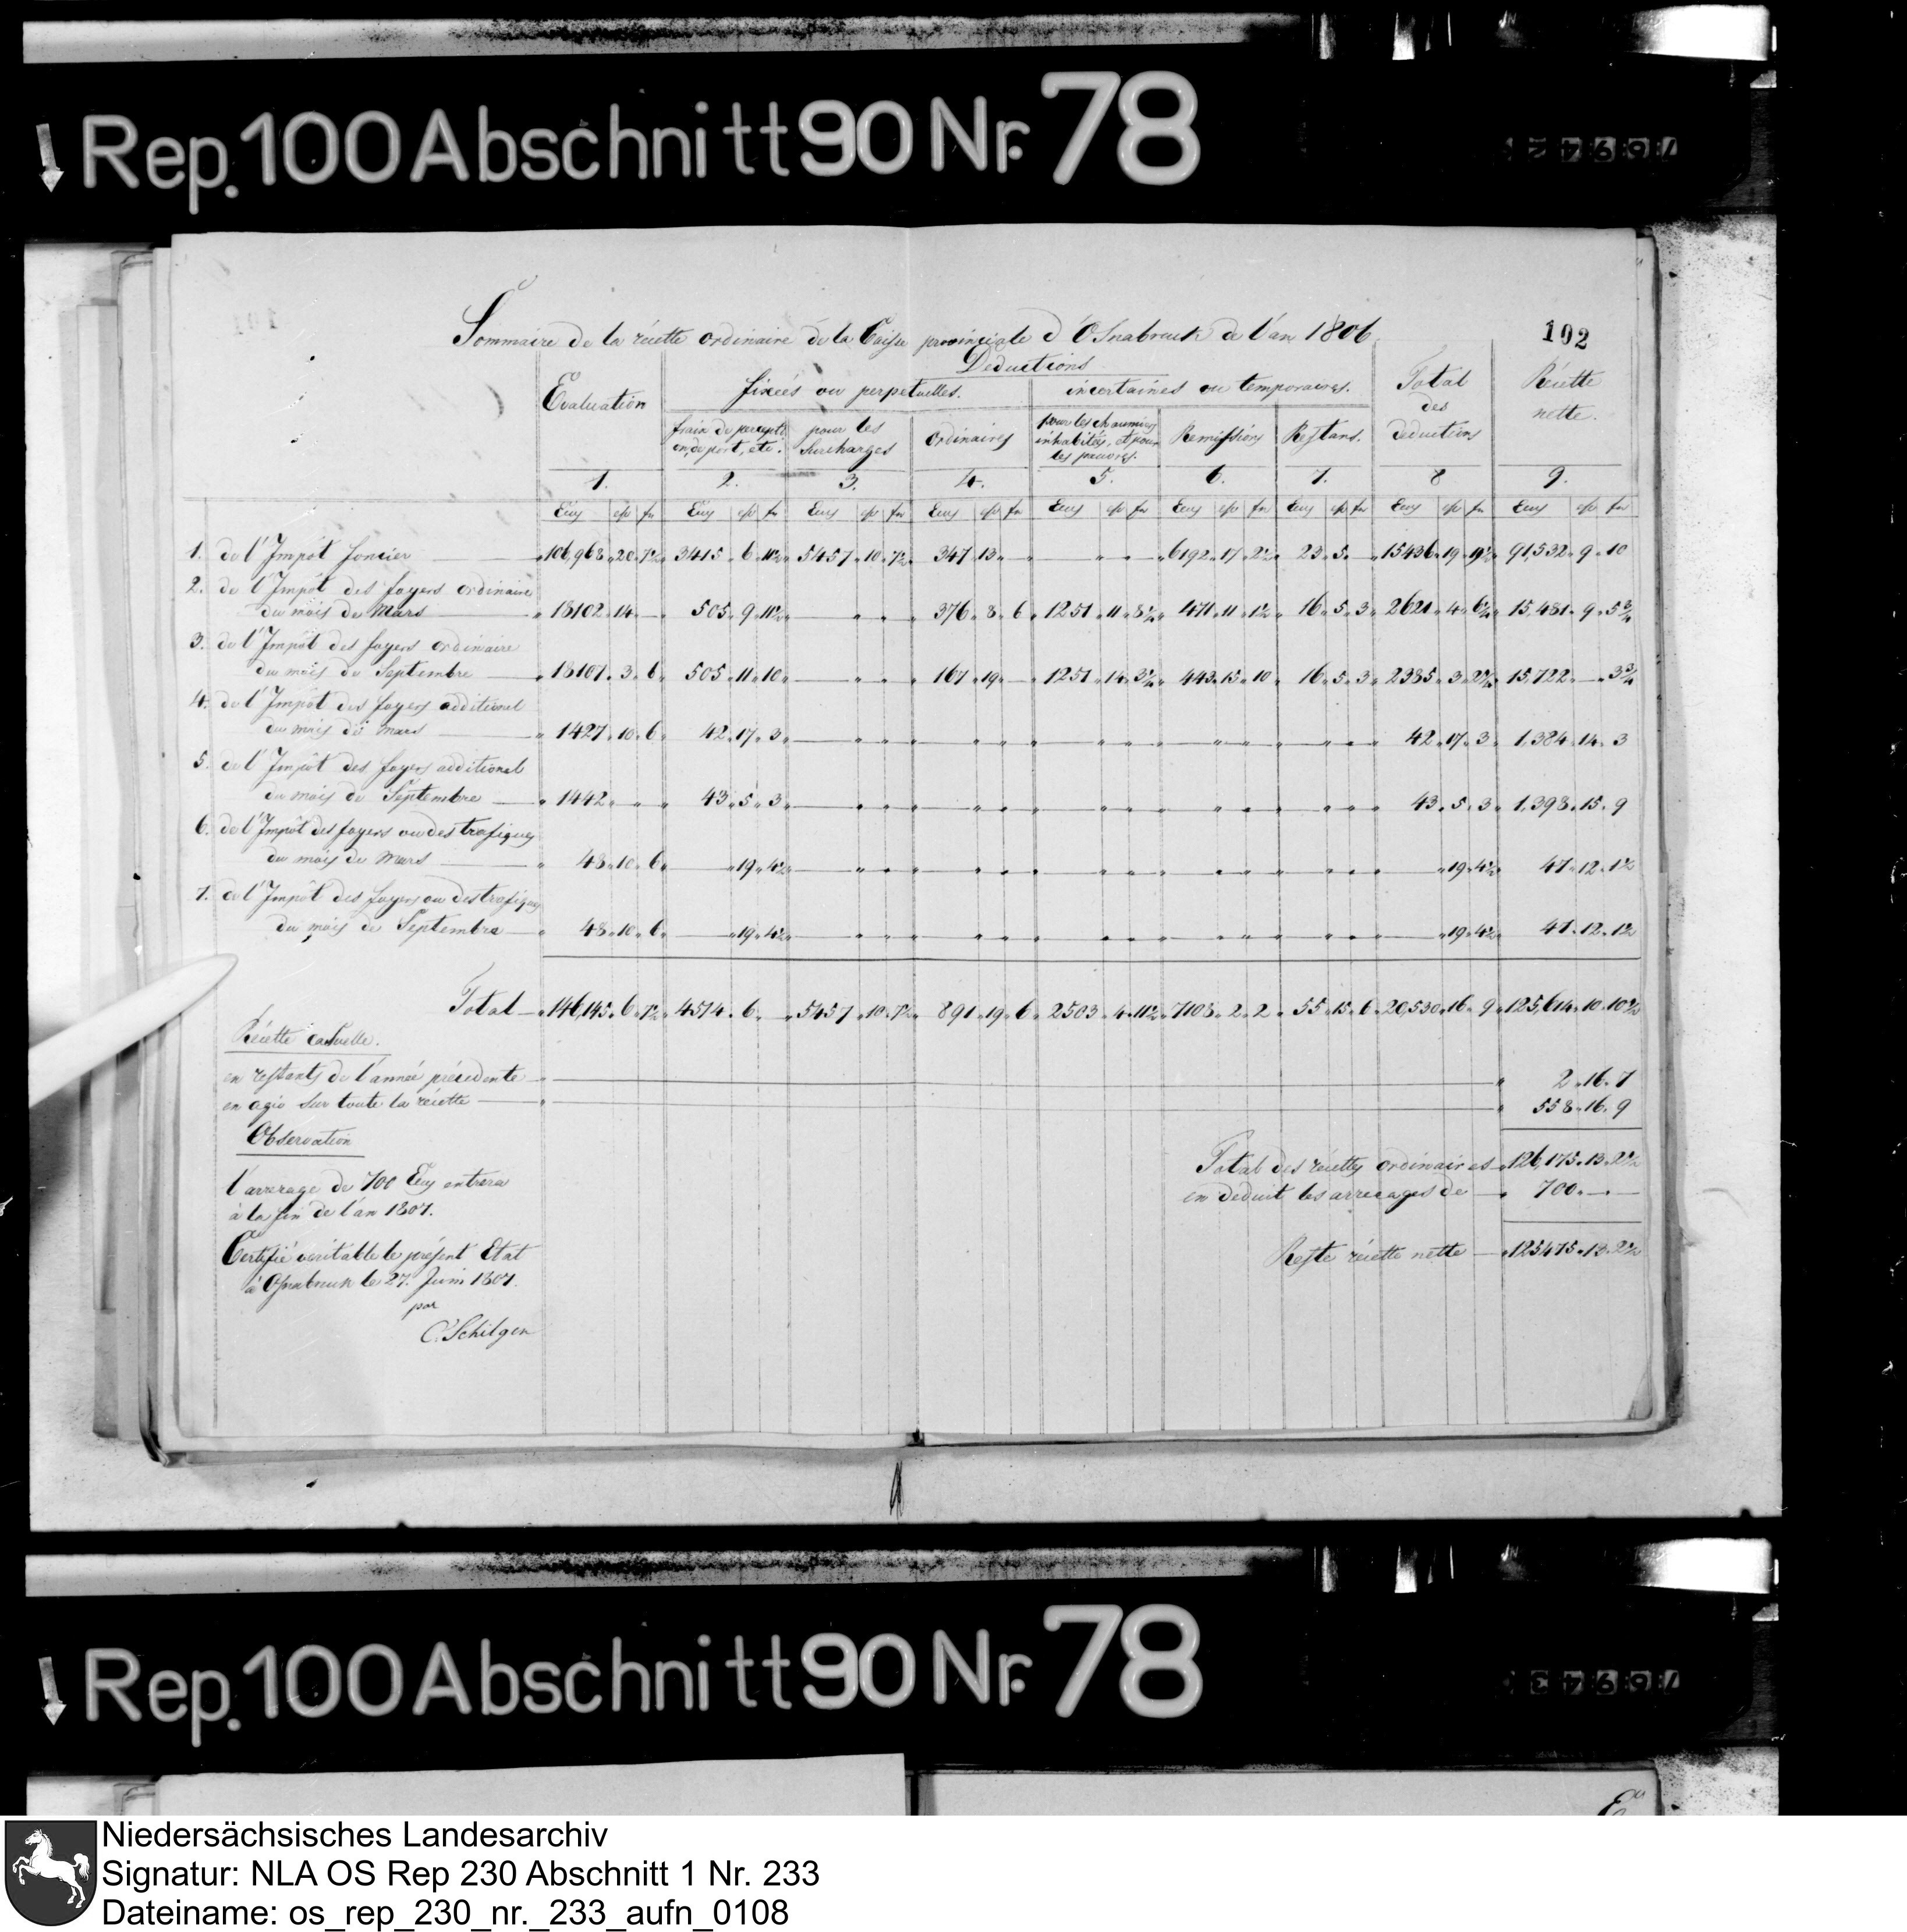 Rep. 100 Abschnitt 90 Nr. 78
Sommaire de la récette ordinaire de la Caisse provinciale d'Osnabruck de l'an 1806.
192
Deductions
Evaluation
fixées ou perpetuelles.
incertaines ou temporaires.
Total des deductions
Récette nette.
pour les surcharges
ordinaires
pour les chaumieres inhabités, et pour les pauvres.
Remissions
Restans.
1. 2. 3. 4. 5. 6. 7. 8 9.
1. de l'Impôt foncier 106,968 20 7½ 3415 6 11½ 5457 10 7½ 347 13 — 6192 17 2½ 23 5 — 15436 19 9½ 91,532 9 10
2. de l'Impôt des foyers ordinaire
du mois de Mars 18102 14 — 505 9 11½ 376 8 6 1251 11 8¼ 471 11 1½ 16 5 3 2621 4 6¼ 15,481 9 5¾
3. de l'Impôt des foyers ordinaire
du mois de Septembre 18107 3 6 505 11 10 167 19 — 1251 14 3¼ 443 15 10 16 5 3 2385 3 2¼ 15,722 — 3¾
4. de l'Impôt des foyers additionel
du mois de mars 1427 10 6 42 17 3 42 17 3 1,384 14 3
5. de l'Impôt des foyers additionel
du mois de Septembre 1442 43 5 3 43 5 3 1,398 15 9
6. de l'Impôt des foyers ou des trafiques
du mois de Mars 48 10 6 19 4½ 19 4½ 47 12 1½
7. de l'Impôt des foyers ou des trafiques
du mois de Septembre 48 10 6 19 4½ 19 4½ 47 12 1½
Total 146,145 6 7½ 4514 6 — 5457 10 7½ 891 19 6 2503 4 11½ 7108 2 2 55 15 6 20,530 16 9 125,614 10 10½
Récette casuelle.
en restants de l'année précedente 2 16 7
en agio sur toute la récette 558 16 9
Observation
Total des récettes ordinaires 126,175 13 2½
l'arrerage de 700 Ecus entrera
en deduit les arrerages de 700
à la fin de l'an 1807.
Reste récette nette 125475 13 2½
Certifié veritable le présent Etat
à Osnabruck le 27. Juin 1807.
par
C. Schilgen
Rep. 100 Abschnitt 90 Nr. 78
Niedersächsisches Landesarchiv
Signatur: NLA OS Rep 230 Abschnitt 1 Nr. 233
Dateiname: os_rep_230_nr._233_aufn_0108